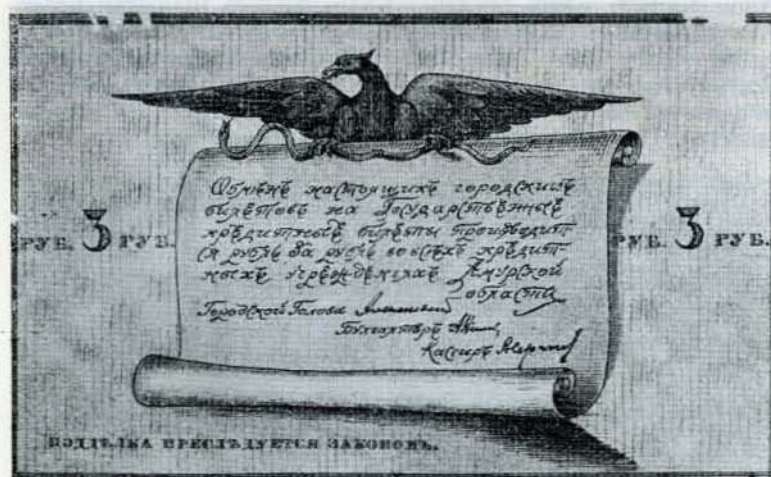 Обмѣнъ настоящихъ городскихъ
билетовъ на Государственные
кредитные билеты производит-
ся рубль за рубль во всѣхъ кредит-
ныхъ учрежденіяхъ Амурской
области
РУБ. 3 РУБ. РУБ. 3 РУБ.
Городской Голова
Бухгалтеръ
Кассиръ
ПОДДѢЛКА ПРЕСЛѢДУЕТСЯ ЗАКОНОМЪ.